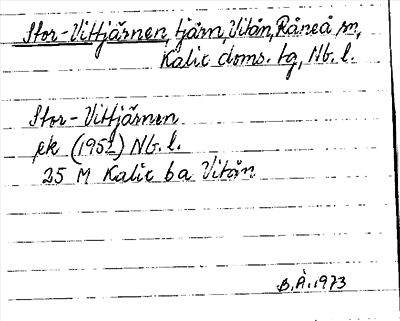 Stor-Vittjärnen, tjärn, Vitån, Råneå sn,
Kalix doms. tg, Nb. l.
Stor-Vittjärnen
ek (1951) Nb. l.
25 M Kalix ba Vitån
B.Å. 1973